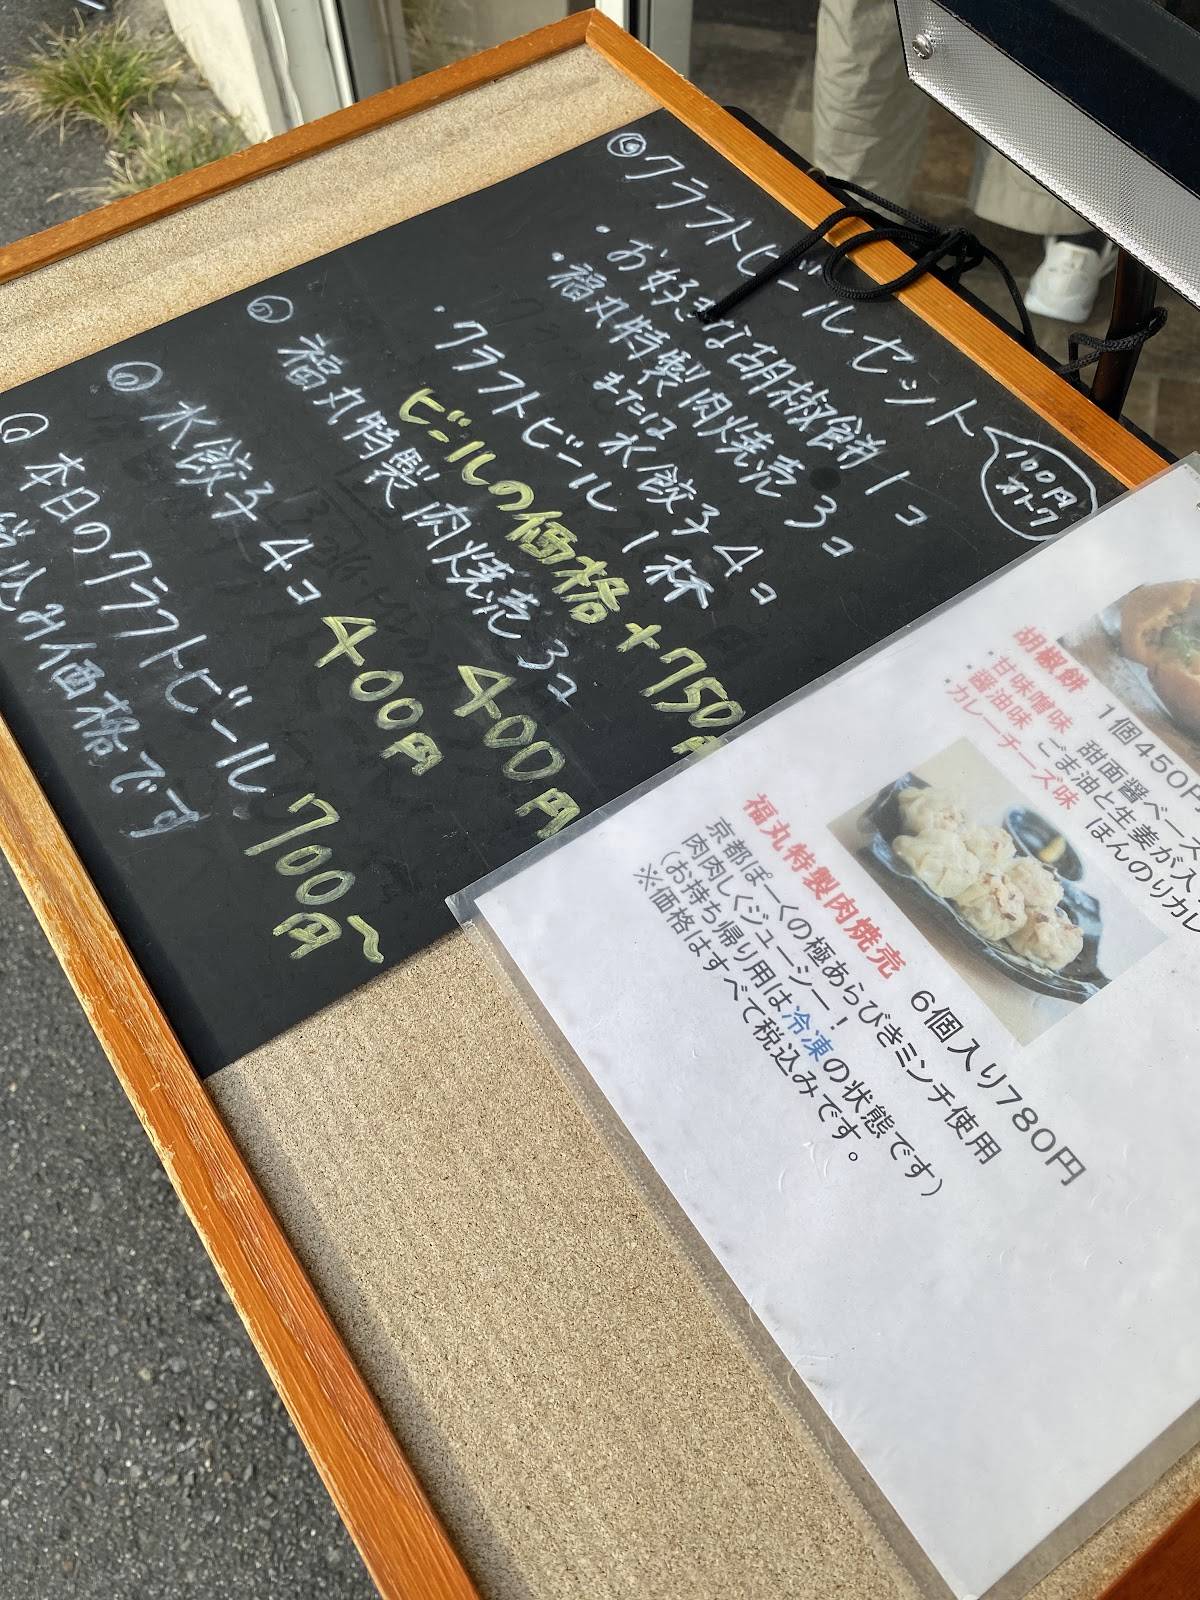 ◎クラフトビールセット
100円
オトク
・お好きな胡椒餅 1コ
・福丸特製肉焼売 3コ
または水餃子4コ
・クラフトビール 1杯
ビールの価格+750円
◎福丸特製肉焼売3コ 400円
◎水餃子4コ 400円
◎本日のクラフトビール 700円〜
税込み価格です
胡椒餅 1個450円
・甘味噌味 甜面醤ベース
・醤油味 ごま油と生姜が入
・カレーチーズ味 ほんのりカレ
福丸特製肉焼売 6個入り780円
京都ぽーくの極あらびきミンチ使用
肉肉しくジューシー!
(お持ち帰り用は冷凍の状態です)
※価格はすべて税込みです。